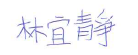 林宜靜